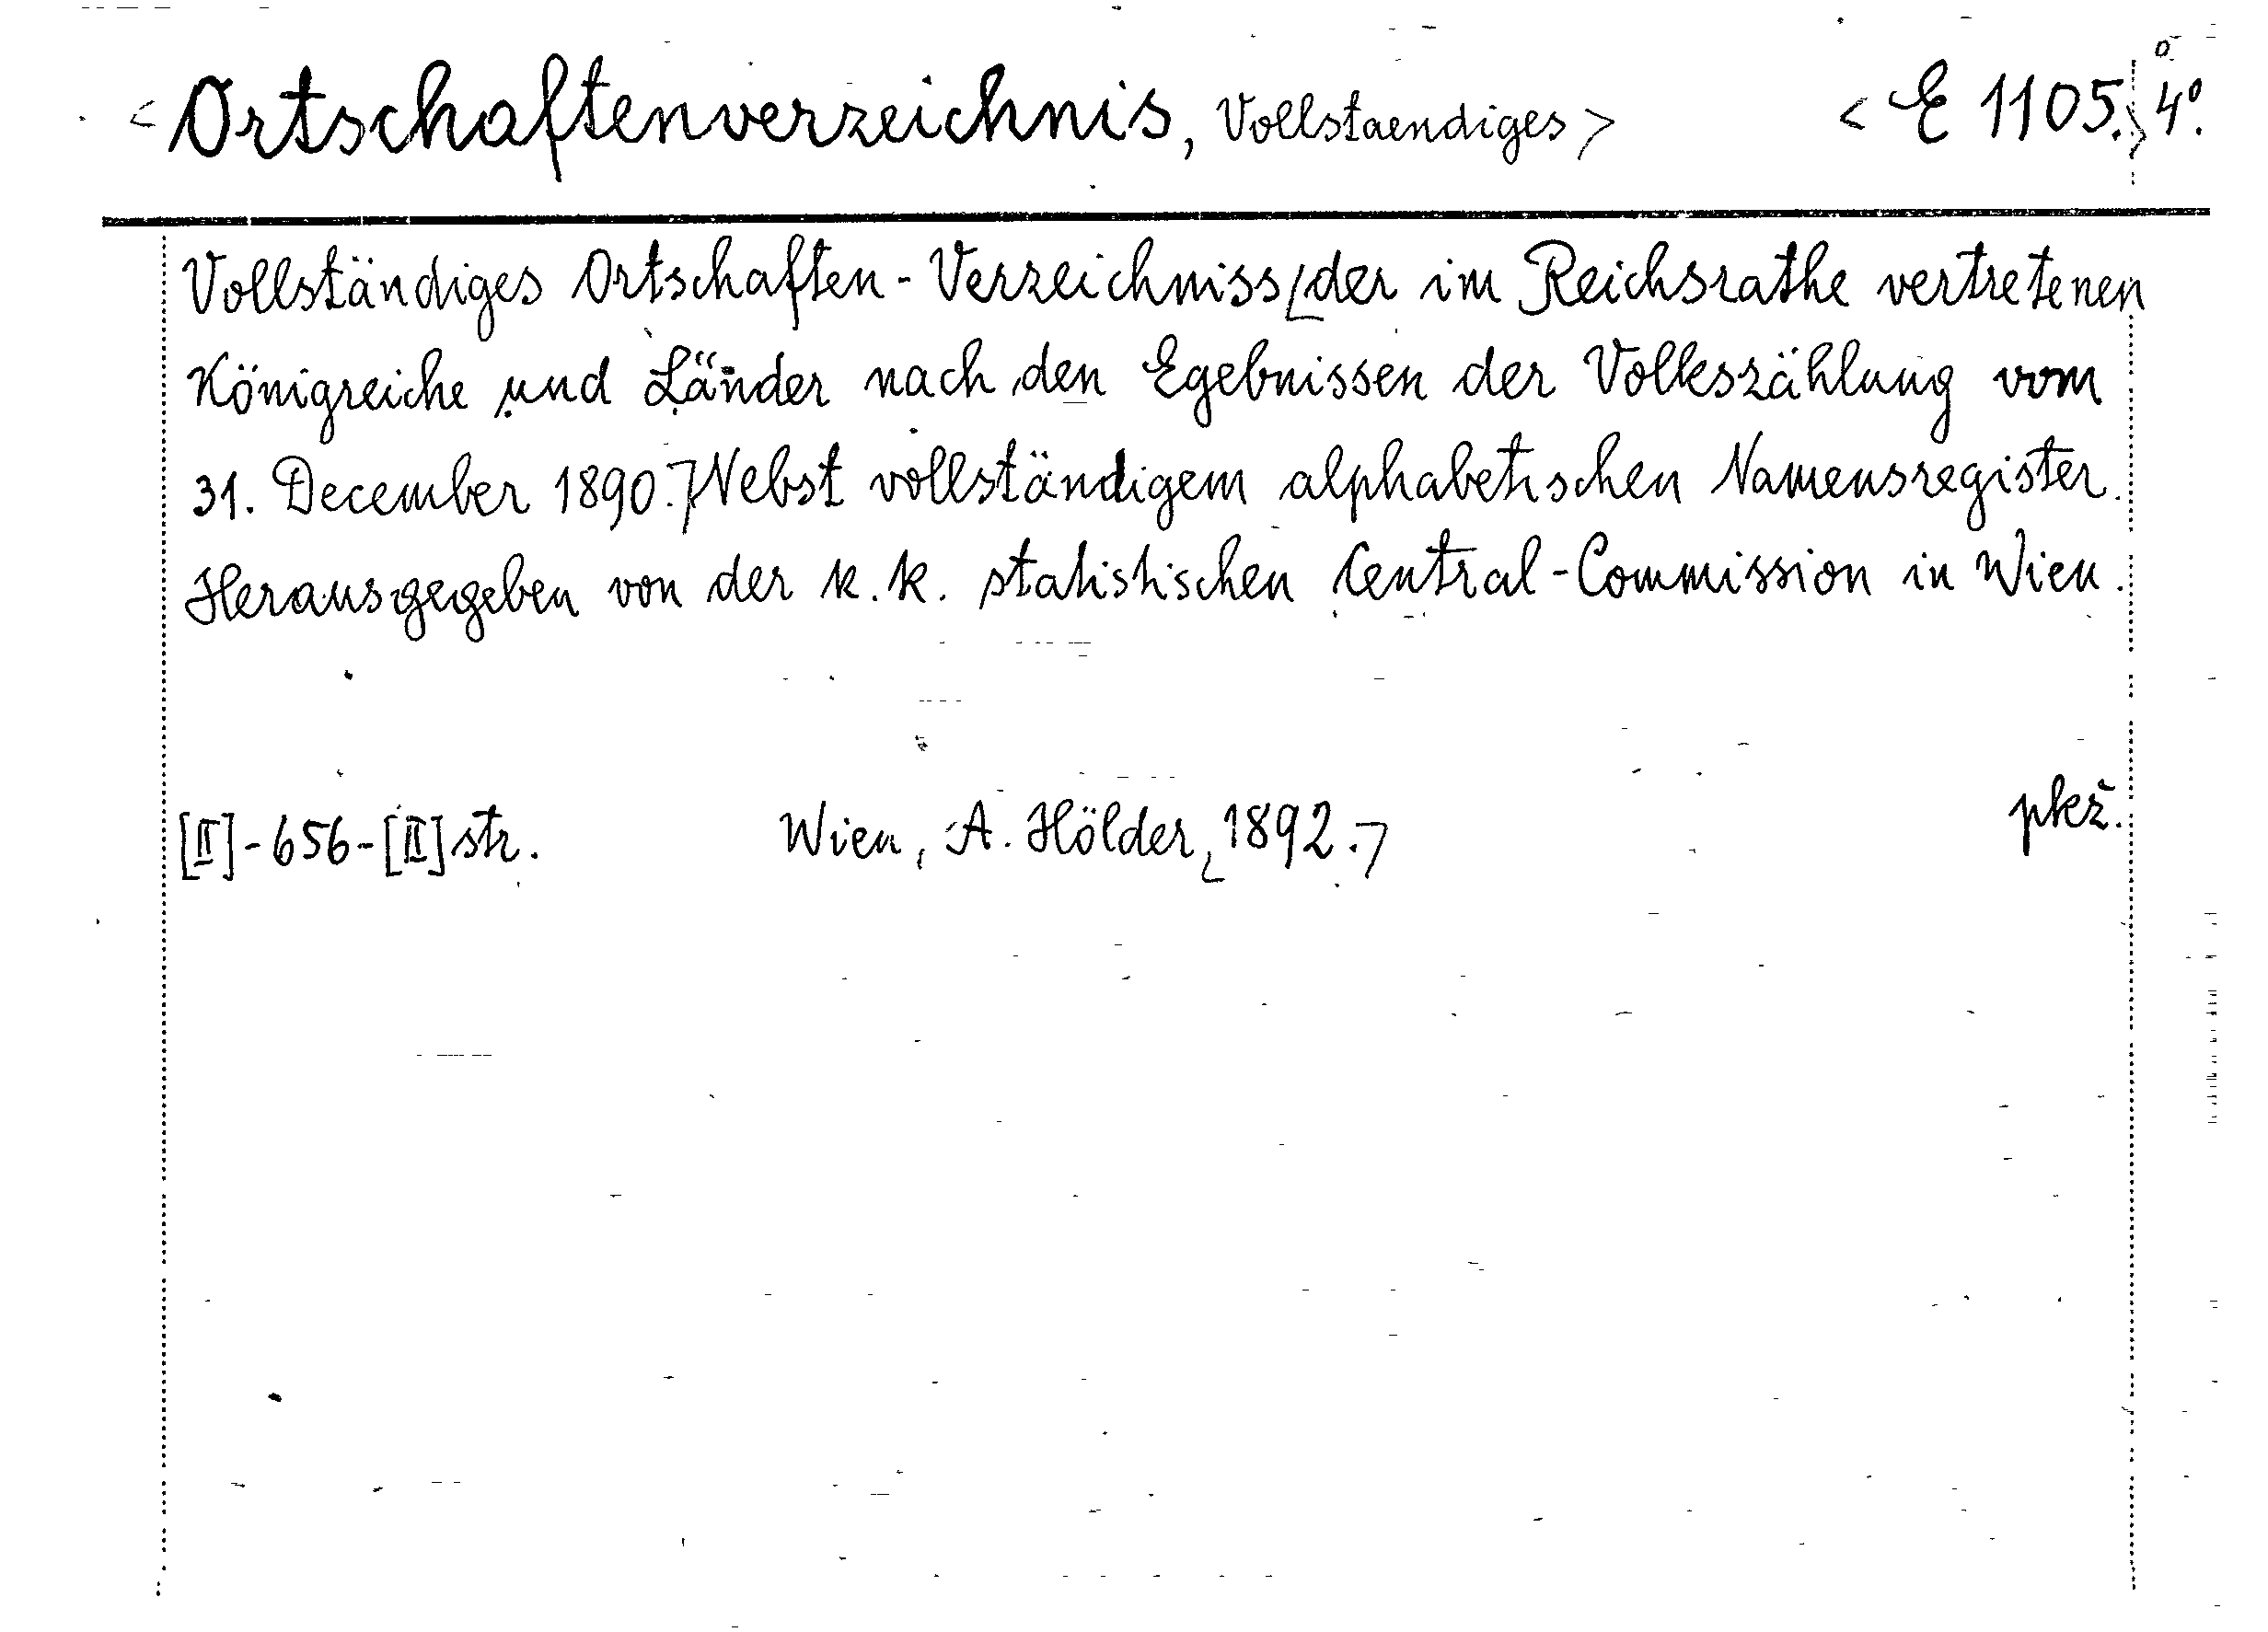 <Ortschaftenverzeichnis, Vollstaendiges> <E 1105.> 4º.
Vollständiges Ortschaften-Verzeichniss [der im Reichsrathe vertretenen
Königreiche und Länder nach den Egebnissen der Volkszählung vom
31. December 1890.] Nebst vollständigem alphabetischen Namensregister.
Herausgegeben von der k. k. statistischen Central-Commission in Wien.
[II]-656-[II] str. Wien, A. Hölder, [1892.] pkž.